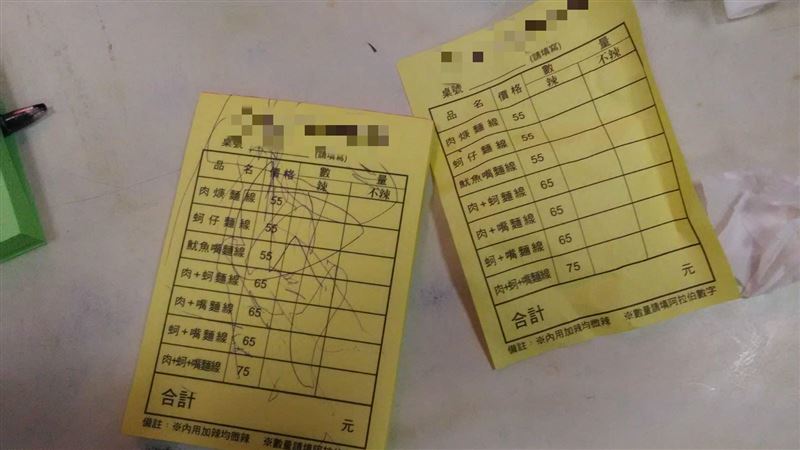 桌號 (請填寫)
品名 價格 數量
辣 不辣
肉焿麵線 55
蚵仔麵線 55
魷魚嘴麵線 55
肉+蚵麵線 65
肉+嘴麵線 65
蚵+嘴麵線 65
肉+蚵+嘴麵線 75
合計 元
備註：※內用加辣均微辣 ※數量請填阿拉伯數字
桌號 (請填寫)
品名 價格 數量
辣 不辣
肉焿麵線 55
蚵仔麵線 55
魷魚嘴麵線 55
肉+蚵麵線 65
肉+嘴麵線 65
蚵+嘴麵線 65
肉+蚵+嘴麵線 75
合計 元
備註：※內用加辣均微辣 ※數量請填阿拉伯數字